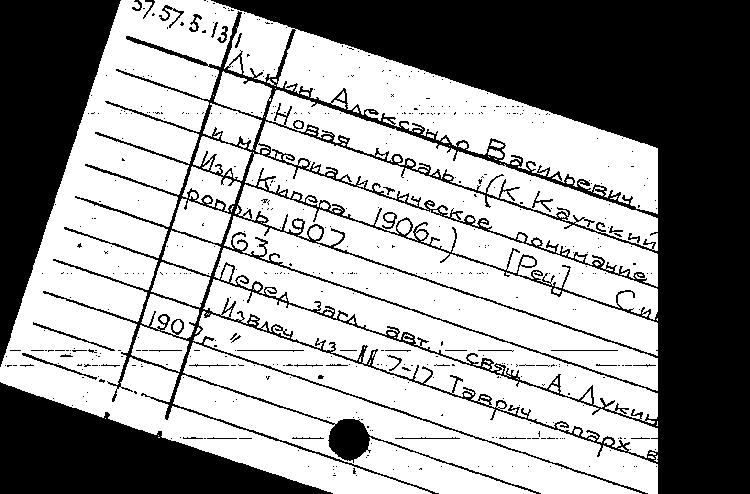 57.57.5.131
Лукин, Александр Васильевич.
Новая мораль. :(К. Каутский
и материалистическое понимание
Изд. Кипера. 1906г.) [Рец.] Сим
рополь, 1907
63с.
Перед загл. авт.: свящ. А. Лукин
"Извлеч. из №№ 7-17 Таврич. епарх. в
1907г."